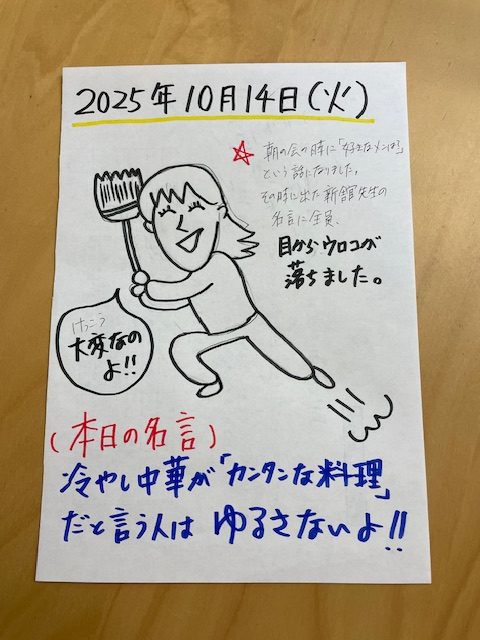 2025年10月14日(火)
☆ 朝の会の時に「好きなメンは?」
という話になりました。
その時に出た新舘先生の
名言に全員、
目からウロコが
落ちました。
けっこう
大変なの
よ!!
(本日の名言)
冷やし中華が「カンタンな料理」
だと言う人は ゆるさないよ!!